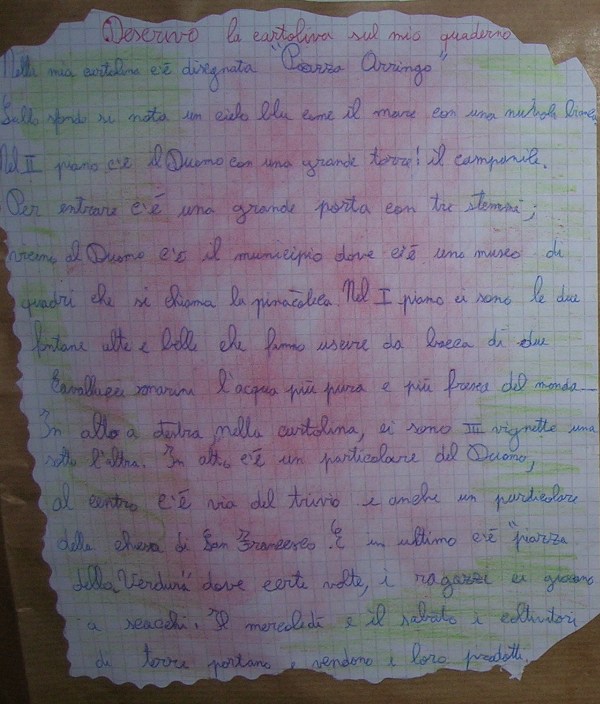 Descrivo la cartolina sul mio quaderno
Nella mia cartolina c'è disegnata "Piazza Arringo"
Sullo sfondo si nota un cielo blu come il mare con una nuvola bianca.
Nel II piano c'è il Duomo con una grande torre: il campanile.
Per entrare c'è una grande porta con tre stemmi;
vicino al Duomo c'è il municipio dove c'è uno museo di
quadri che si chiama la pinacoteca. Nel I piano ci sono le due
fontane alte e belle che fanno uscire da bocca di due
cavallucci marini l'acqua più pura e più fresca del mondo
In alto a destra, nella cartolina, ci sono III vignette una
sotto l'altra. In alto c'è un particolare del Duomo,
al centro c'è via del trivio e anche un particolare
della chiesa di San Francesco. E in ultimo c'è "piazza
della Verdura" dove certe volte, i ragazzi ci giocano
a scacchi. Il mercoledì e il sabato i coltivatori
di torre portano e vendono i loro prodotti.